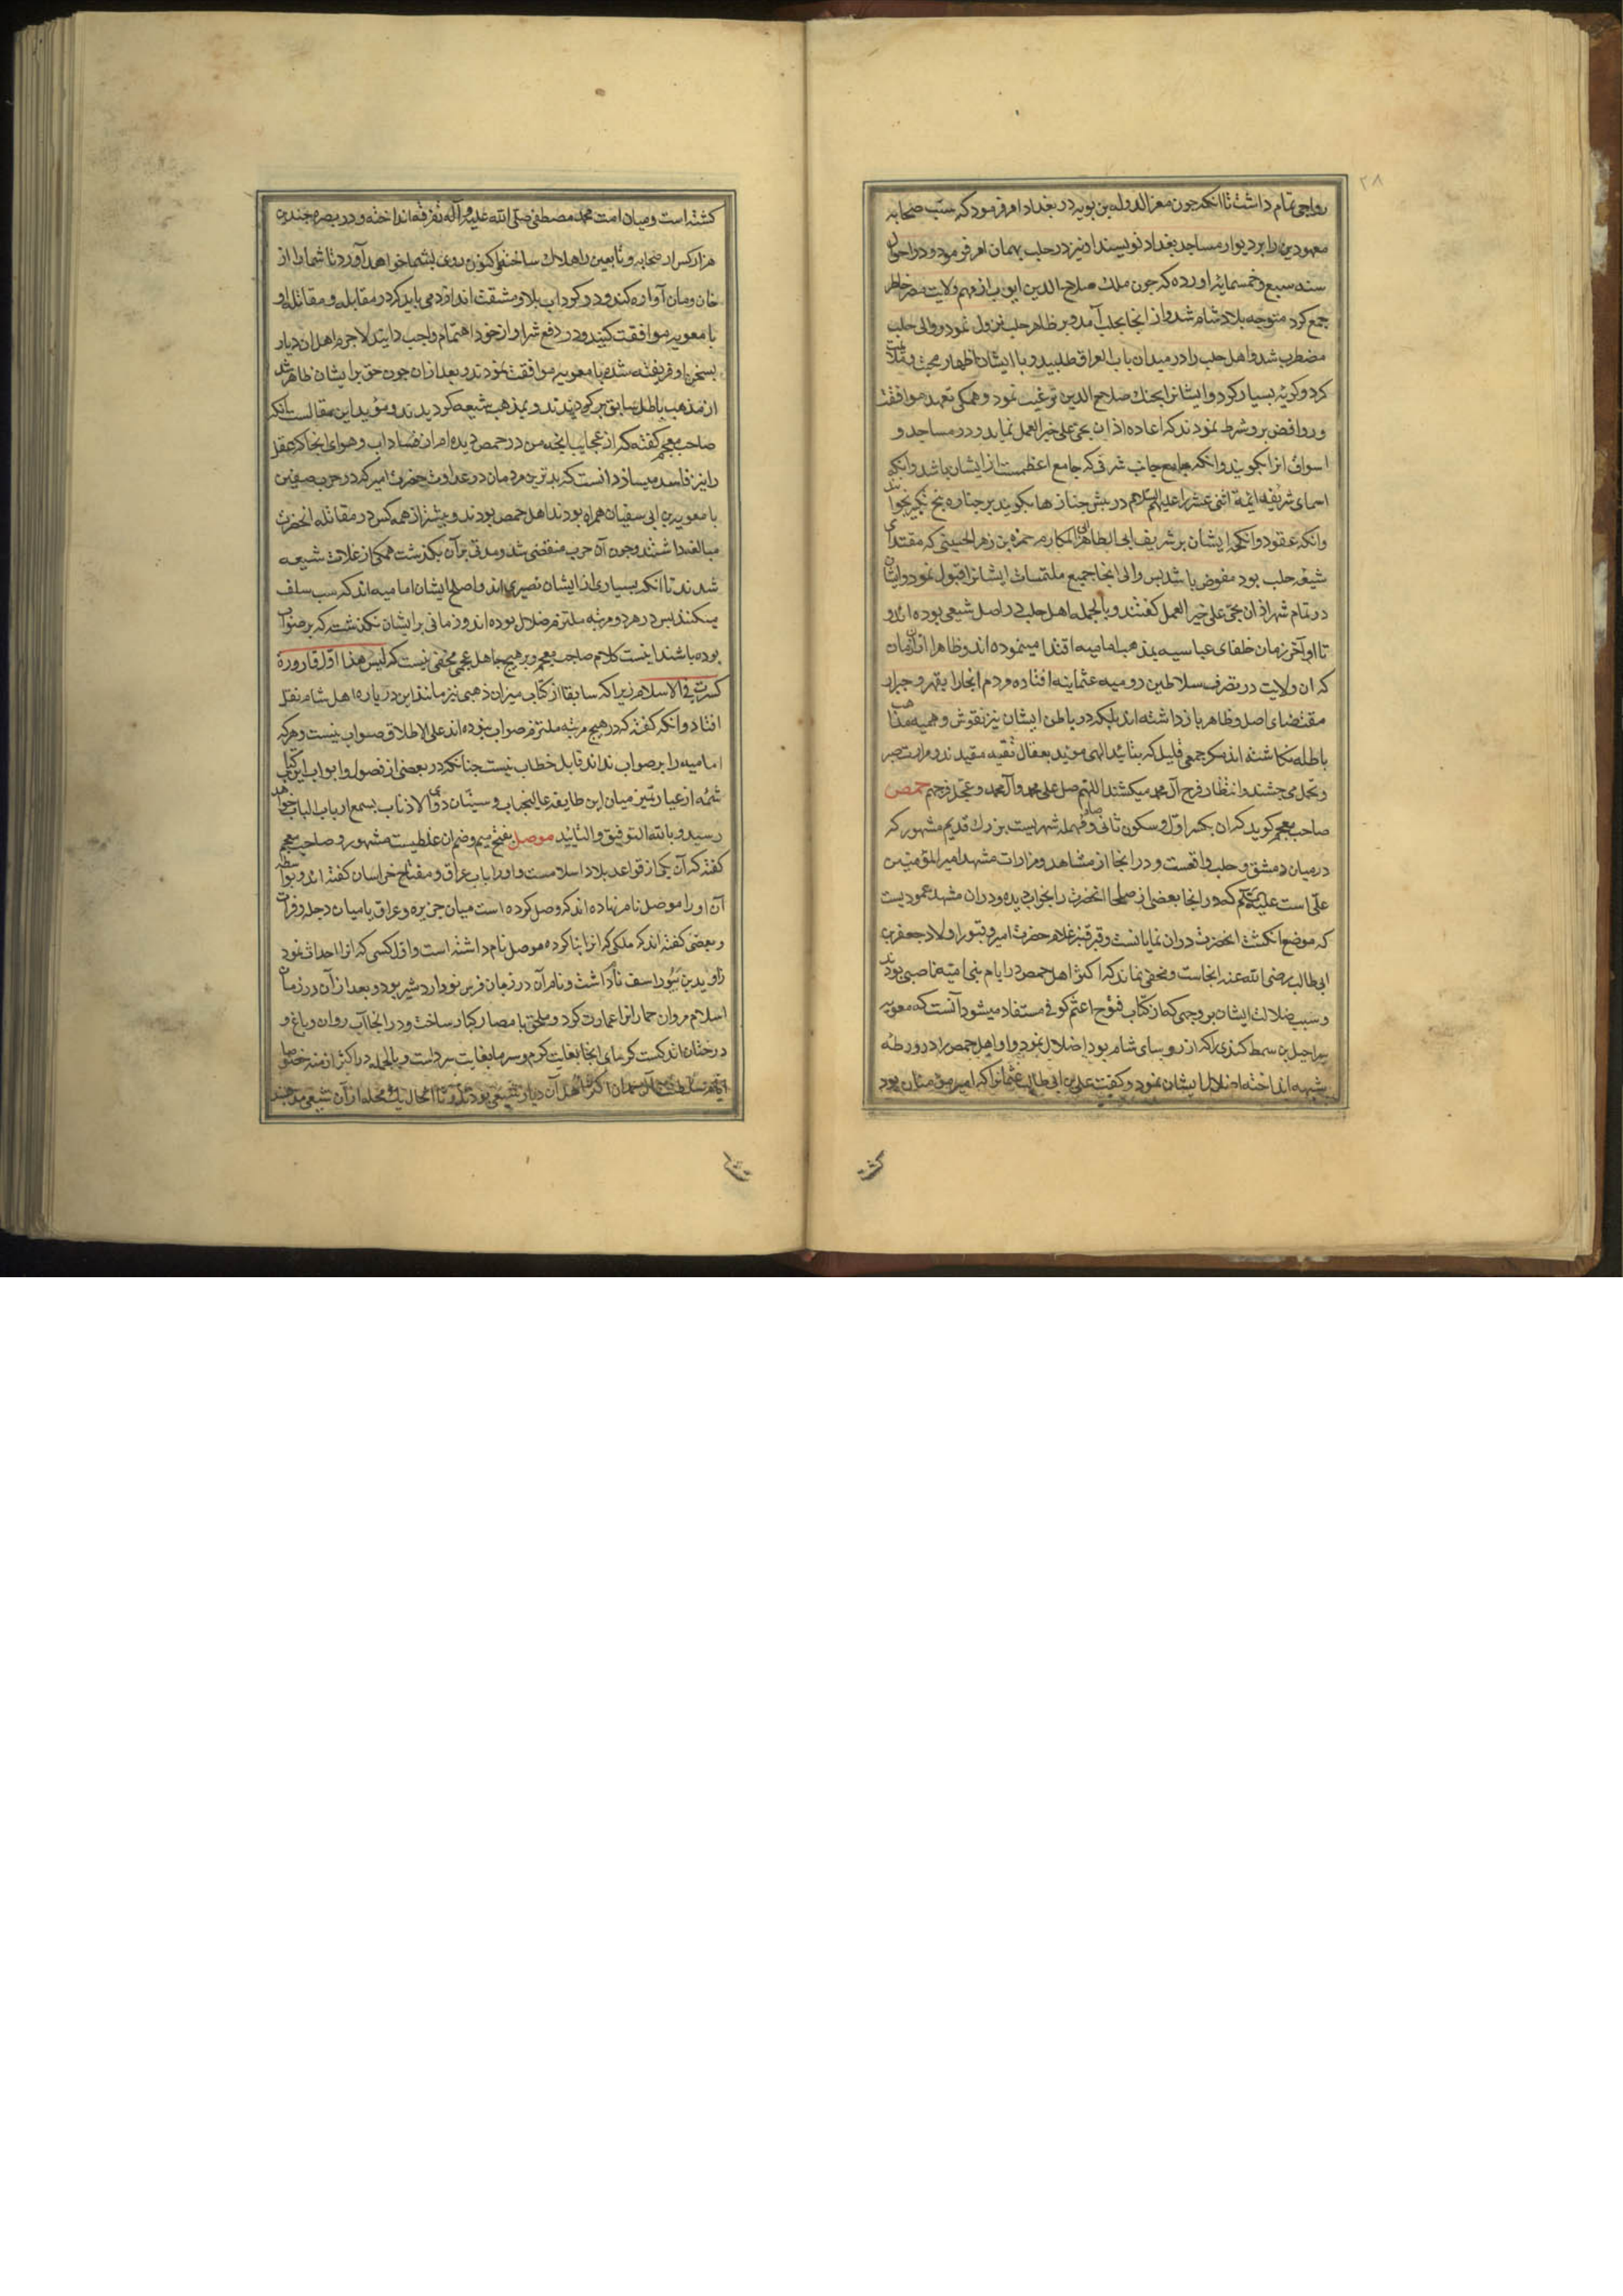 ۲۸
رواجی تمام داشت تا انکه چون معز الدوله بن بویه در بغداد امر فرمود که سب صحابه
معهودین را بر دیوار مساجد بغداد نویسند او نیز در حلب بهمان امر فرمود و در احوال
سنه سبع و خمسمایة آورده که چون ملک صلاح الدین ایوب از مهم ولایت مصر خاطر
جمع کرد متوجه بلاد شام شد و از انجا بحلب آمد و بر ظاهر حلب نزول نمود و والی حلب
مضطرب شد و اهل حلب را در میدان باب العراق طلبید و با ایشان اظهار محبت و ملایمت
کرد و کریه بسیار کرد و ایشانرا بجنک صلاح الدین ترغیب نمود و همکی تعهد موافقت
و روافض برو شرط نمودند که اعاده اذان بحی علی خیر العمل نماید و در مساجد و
اسواق انرا بکویند و انکه جامع جانب شرقی که جامع اعظمست از ایشان باشد و انکه
اسمای شریفه ائمة اثنی عشر را علیهم السلام در پیش جنازها بکویند و بر جنازه پنج تکبیر بخوانند
وانکه عقود وانکحه ایشان بر شریف ابی الطاهر ابی المکارم حمزه بن زهرا الحسینی که مقتدای
شیعه حلب بود مفوض باشد پس والی انجا جمیع ملتمسات ایشانرا قبول نمود و ایشان
در تمام شهر اذان بحی علی خیر العمل کفتند و بالجمله اهل حلب در اصل شیعی بوده اند و
تا اواخر زمان خلفای عباسیه بمذهب امامیه اقتدا مینموده اند و ظاهرا از آن زمان
که ان ولایت در تصرف سلاطین رومیه عثمانیه افتاده مردم انجا را بقهر و جبر از
مقتضای اصل و ظاهر بازداشته اند بلکه در باطن ایشان نیز نقوش وهمیه مذاهب
باطله نکاشته اند مکر جمعی قلیل که بتائید الهی موید بعقال تقیه مقیدند و مرارت صبر
و تحمل می چشند و انتظار فرج آل محمد میکشند اللهم صل علی محمد وآل محمد و عجل فرجهم حمص
صاحب معجم کوید که ان بکسر اول و سکون ثانی و صاد مهمله شهریست بزرک قدیم مشهور که
در میان دمشق و حلب واقعست و در انجا از مشاهد و مزارات مشهد امیر المؤمنین
علی است علیه السلام که در انجا بعضی از صلحا انحضرت را بخواب دیده و در ان مشهد عمودیست
که موضع انکشت انحضرت در وان نمایانست و قبر قنبر غلام حضرت امیر و قبور اولاد جعفر بن
ابی طالب رضی الله عنه انجاست و مخفی نماند که اکثر اهل حمص در ایام بنی امیه ناصبی بودند
و سبب ضلالت ایشان بر وجهی که از کتاب فتوح اعثم کوفی مستفاد میشود آنست که معویه
شراحیل بن سمط کندی را که از روسای شام بود اضلال نمود و او اهل حمص را در ورطه
شبهه انداخته اضلال ایشان نمود و کفت علی بن ابی طالب عثمانرا که امیر مؤمنان بود
کشته
کشته است و میان امت محمد مصطفی صلی الله علیه و آله تفرقه انداخته و در بصره چندین
هزار کس از صحابه و تابعین را هلاک ساخته و اکنون روی بشما خواهد آورد تا شما را از
خان و مان آواره کند و در کرداب بلا و مشقت اندازد می باید که در مقابله و مقاتله او
با معویه موافقت کنید و در دفع شر او از خود اهتمام واجب دانید لاجرم اهل ان دیار
بسخن او فریفته شده با معویه موافقت نمودند و بعد از ان چون حق بر ایشان ظاهر شد
از مذهب باطل سابق برکردیدند و بمذهب شیعه کردیدند و مؤید این مقالست انکه
صاحب معجم کفته که از عجایب انچه من در حمص دیده ام از فساد اب و هوای انجا که عقل
را نیز فاسد میسازد انست که بدترین مردمان در عداوت حضرت امیر که در حرب صفین
با معویه بن ابی سفیان همراه بودند اهل حمص بودند و بیشتر از همه کس در مقاتله انحضرت
مبالغه داشتند و چون آن حرب منقضی شد و مدتی بر آن بکذشت همکی از غلات شیعه
شدند تا انکه بسیاری از ایشان نصیری اند و اصل ایشان امامیه اند که سب سلف
میکنند پس در هر دو مرتبه ملتزم ضلال بوده اند و زمانی بر ایشان نکذشت که بر صواب
بوده باشند اینست کلام صاحب معجم و بر هیچ جاهل عجمی مخفی نیست که لیس هذا اول قارورة
کسرت فی الاسلام زیرا که سابقا از کتاب میزان ذهبی نیز مانند این در باره اهل شام نقل
افتاد و انکه کفته که در هیچ مرتبه ملتزم صواب نبوده اند علی الاطلاق صواب نیست و هر که
امامیه را بر صواب نداند قابل خطاب نیست چنانکه در بعضی از فصول و ابواب این کتاب
شمه از عبارت تمیز میان این طایفه عالیجناب و سنیان ذوی الاذناب بسمع ارباب الباب خواهد
رسید و بالله التوفیق والتائید موصل بفتح میم و ضم ان غلطیست مشهور و صاحب معجم
کفته که آن یکی از قواعد بلاد اسلامست و او را باب عراق و مفتاح خراسان کفته اند و بواسطه
آن او را موصل نام نهاده اند که وصل کرده است میان جزیره و عراق یا میان دجله و فرات
و بعضی کفته اند که ملکی که انرا بنا کرده موصل نام داشته است و اول کسی که انرا احداث نمود
راوند بن بیوراسف نام داشت و نام آن در زمان فرس نواردشیر بود و بعد از آن در زمان
اسلام مروان حمار انرا عمارت کرد و ملحق بامصار کبار ساخت و در انجا آب روان و باغ و
درختان اندکست کرمای انجا بغایت کرم و سرما بغایت سرد است و بالجمله در اکثر ازمنه خصوصا
ایام سلطنت آل حمدان اکثر اهل آن دیار شیعی بودند و تا الحال یک محله از آن شیعی مذهبند